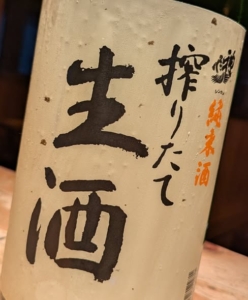 純米酒
搾りたて
生酒